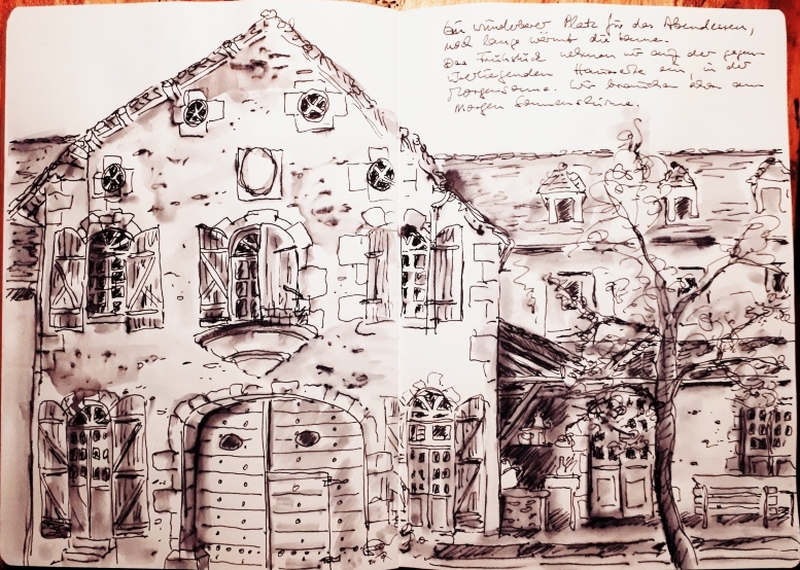 Ein wunderbarer Platz für das Abendessen,
noch lange wärmt die Sonne.
Das Frühstück nehmen wir auf der gegen-
überliegenden Hausseite ein, in der
Morgensonne. Wir brauchen schon am
Morgen Sonnenschirme.